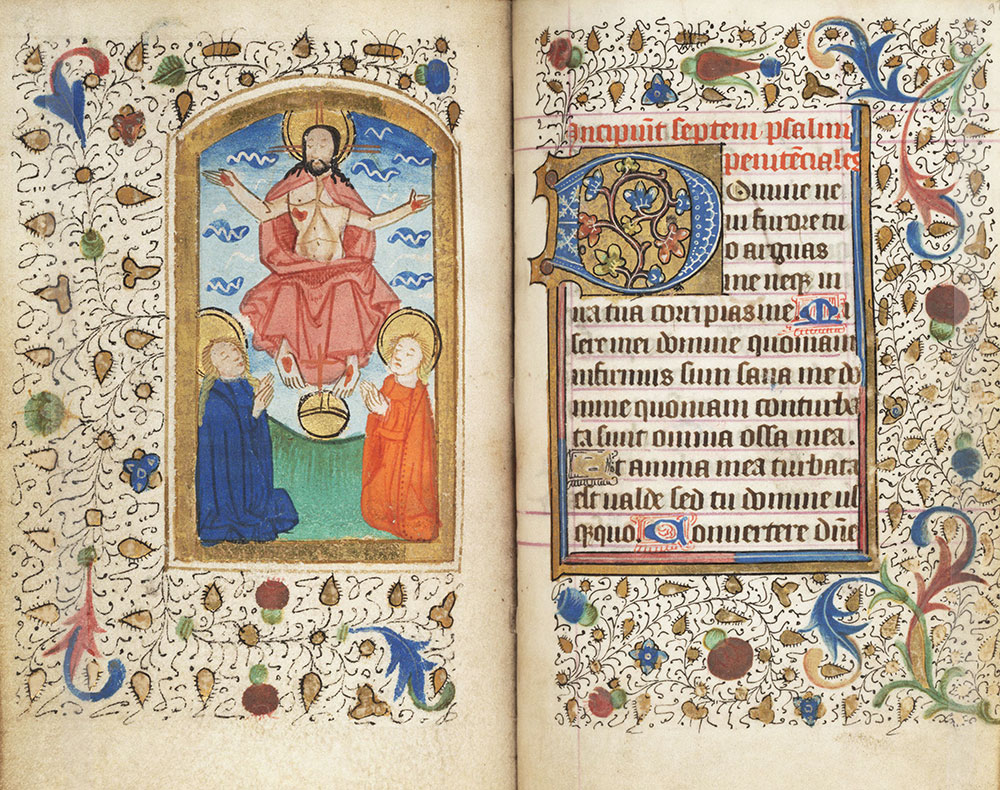 Incipiu͂t septem psalmi
penite͂ciales
Domine ne
in furore tu
o arguas
me neqʒ in
ira tua corripias me Mi
sere mei domine quoniam
infirmus sum sana me do
mine quoniam conturba
ta sunt omnia ossa mea.
Et anima mea turbata
est valde sed tu domine us
qʒquo Convertere dn͂e